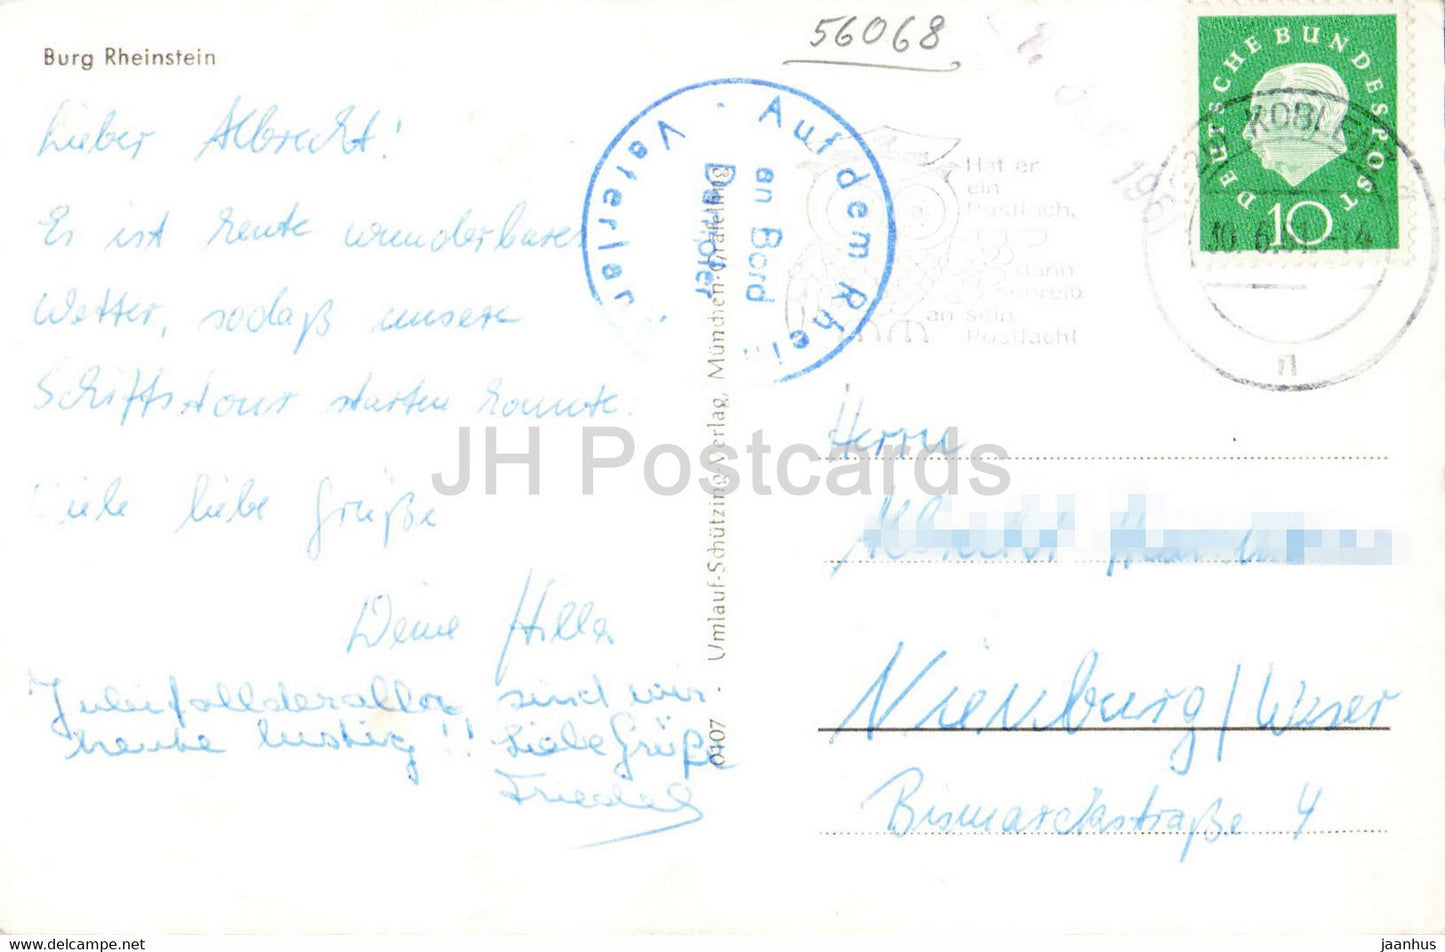 Burg Rheinstein
56068
Lieber Albrecht!
Es ist heute wunderbares
Wetter, sodaß unsere
Schiffstour starten konnte.
Viele liebe Grüße
Deine Hilla
sind wir
heute lustig!! Liebe Grüße
Friedel
Auf dem Rhein
an Bord
Dampfer
Vaterland
Hat er
ein
Postfach,
dann
schreib
an sein
Postfach!
DEUTSCHE BUNDESPOST
10
KOBLENZ
10.6.61.-14
n
1961
0107 · Umlauf-Schützing-Verlag, München-Gräfelfing
JH Postcards
Herrn
Albrecht
Nienburg/Weser
Bismarckstraße 4
Burg Rheinstein - old postcard - 1961 - Germany - used